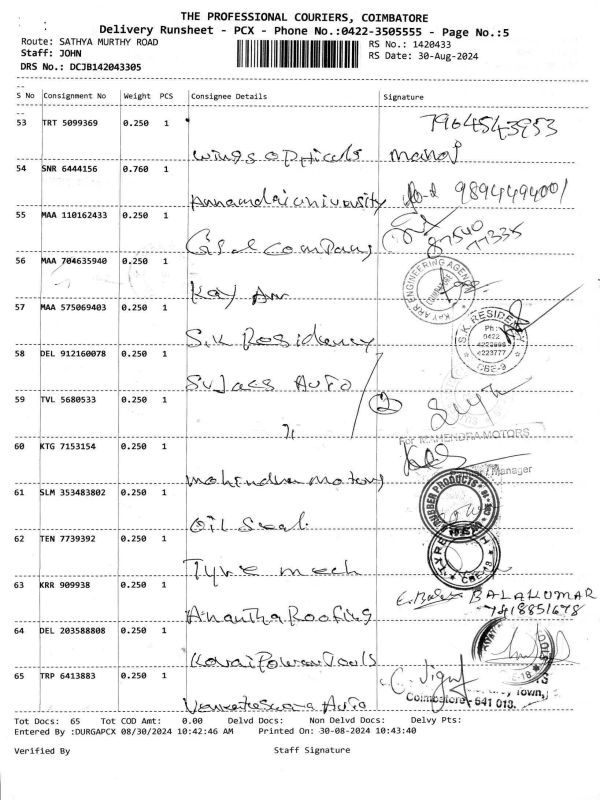 THE PROFESSIONAL COURIERS, COIMBATORE
Delivery Runsheet - PCX - Phone No.:0422-3505555 - Page No.:5
Route: SATHYA MURTHY ROAD
RS No.: 1420433
Staff: JOHN
RS Date: 30-Aug-2024
DRS No.: DCJB142043305
S No Consignment No Weight PCS Consignee Details Signature
53 TRT 5099369 0.250 1
7964543953
Wings Opticals Manoj
54 SNR 6444156 0.760 1
Annamalai University 9894494001
55 MAA 110162433 0.250 1
87540
77335
Company
56 MAA 704635940 0.250 1
KAY ARR ENGINEERING AGENCY
Kay Arr
57 MAA 575069403 0.250 1
S.K. RESIDENCY
Ph:
0422
4223777
CBE-9
S.K Residency
58 DEL 912160078 0.250 1
Auto
59 TVL 5680533 0.250 1
2
For MAHENDRA MOTORS
60 KTG 7153154 0.250 1
Manager
Mahindra Motors
61 SLM 353483802 0.250 1
RUBBER PRODUCTS
Oil Seal
62 TEN 7739392 0.250 1
TYRE
CBE-18
Tyre mech
63 KRR 909938 0.250 1
E. Bala BALAKUMAR
7818851678
Anantha Roofing
64 DEL 203588808 0.250 1
Kovai Power Tools
65 TRP 6413883 0.250 1
Town,
Coimbatore - 641 018.
Venkateswara Auto
Tot Docs: 65 Tot COD Amt: 0.00 Delvd Docs: Non Delvd Docs: Delvy Pts:
Entered By :DURGAPCX 08/30/2024 10:42:46 AM Printed On: 30-08-2024 10:43:40
Verified By Staff Signature